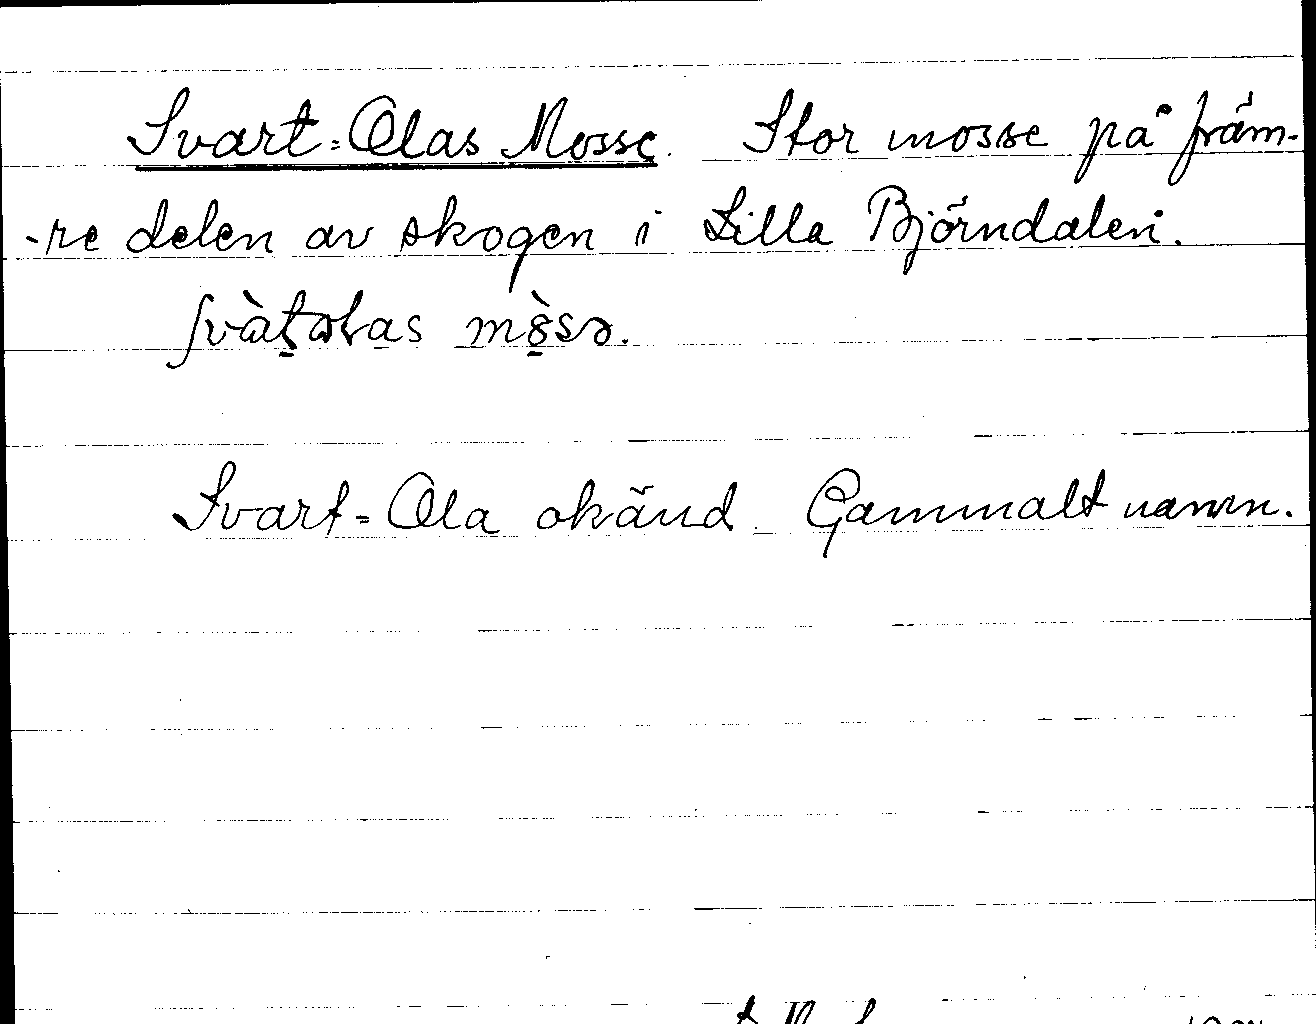 Svart-Olas Mosse. Stor mosse på främ-
-re delen av skogen i Lilla Björndalen.
Svart-Ola okänd. Gammalt namn.